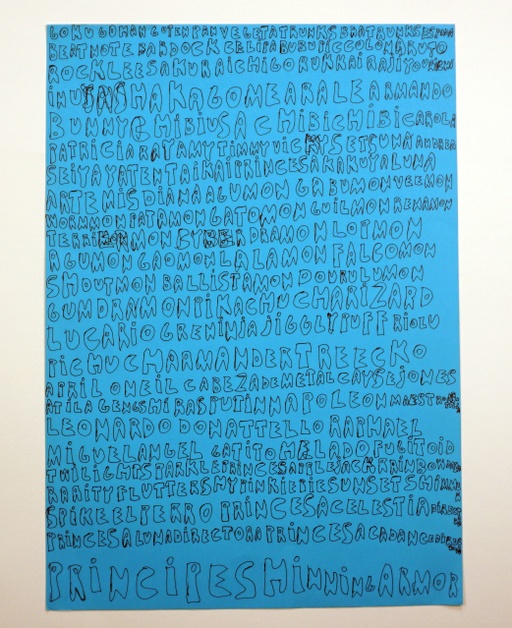 GOKUGOHANGOTENPANVEGETATRUNKSBRATRUNKS
BEATNOTEBARDOCKCELIPABUBUPICCOLONARUTO
ROCKLEESAKURAICHIGORUKKAIRAJIYOU
INUYASHAKAGOMEARALEARMANDO
BUNNYCHIBIUSACHIBICHIBICAROLA
PATRICIARAYAMYTIMMYVICKYSETSUNAANDREA
SEIYAYATENTAIKAIPRINCESAKAKUYALUNA
ARTEMISDIANAAGUMONGABUMONVEEMON
WORMMONPATAMONGATOMONGUILMONRENAMON
TERRIERMONCYBERDRAMONLOPMON
AGUMONGAOMONLALAMONFALCOMON
SHOUTMONBALLISTAMONDORULUMON
GUMDRAMONPIKACHUCHARIZARD
LUCARIOGRENINJAJIGGLYPUFFRIOLU
PICHUCHARMANDERTREECKO
APRILONEILCABEZADEMETALCAYSEJONES
ATILAGENGSHIRASPUTINNAPOLEON
LEONARDODONATTELLORAPHAEL
MIGUELANGELGATITOHELADOFUGITOID
TWILIGHTSPARKLEPRINCESAAPPLEJACKRAINBOW
RARITYFLUTTERSHYPINKIEPIESUNSETSHIMM
SPIKEELPERROPRINCESACELESTIA
PRINCESALUNADIRECTORAPRINCESACADANCE
PRINCIPESHINNINGARMOR